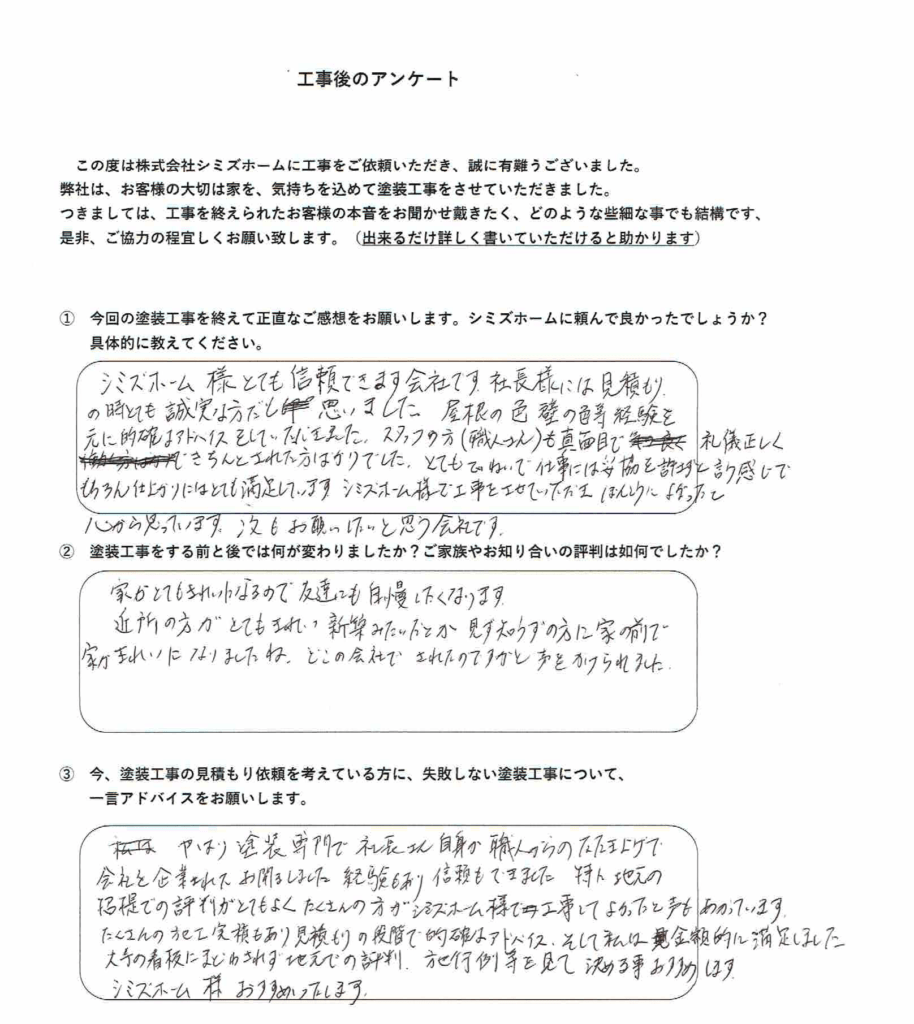 工事後のアンケート
この度は株式会社シミズホームに工事をご依頼いただき、誠に有難うございました。
弊社は、お客様の大切は家を、気持ちを込めて塗装工事をさせていただきました。
つきましては、工事を終えられたお客様の本音をお聞かせ戴きたく、どのような些細な事でも結構です、
是非、ご協力の程宜しくお願い致します。（出来るだけ詳しく書いていただけると助かります）
① 今回の塗装工事を終えて正直なご感想をお願いします。シミズホームに頼んで良かったでしょうか？
具体的に教えてください。
シミズホーム様とても信頼できます会社です。社長様には見積もり
の時とても誠実な方だと思いました。屋根の色 壁の色等経験を
元に的確なアドバイスをしていただきました。スタッフの方(職人さん)も真面目で 礼儀正しく
きちんとされた方ばかりでした。とてもていねいで仕事には妥協を許さずと言う感じで
もちろん仕上がりにはとても満足しています。シミズホーム様で工事をさせていただき ほんとうによかったと
心から思っています。次もお願いしたいと思う会社です。
② 塗装工事をする前と後では何が変わりましたか？ご家族やお知り合いの評判は如何でしたか？
家がとてもきれいになるので友達にも自慢したくなります。
近所の方がとてもきれい 新築みたいだとか 見ず知らずの方に家の前で
家がきれいになりましたね。どこの会社でされたのですかと声をかけられました。
③ 今、塗装工事の見積もり依頼を考えている方に、失敗しない塗装工事について、
一言アドバイスをお願いします。
やはり 塗装専門で 社長さん自身が職人からのたたき上げで
会社を企業されて お聞きしました 経験もあり 信頼もできました 特に 地元の
での評判がとてもよく たくさんの方がシミズホーム様で工事してよかったと声もあがっています。
たくさんの施工実積もあり見積もりの段階で的確なアドバイス、そして私は 金額的に満足しました
大手の看板にまどわされず地元での評判、施行例等を見て 決める事おすすめします。
シミズホーム様 おすすめいたします。